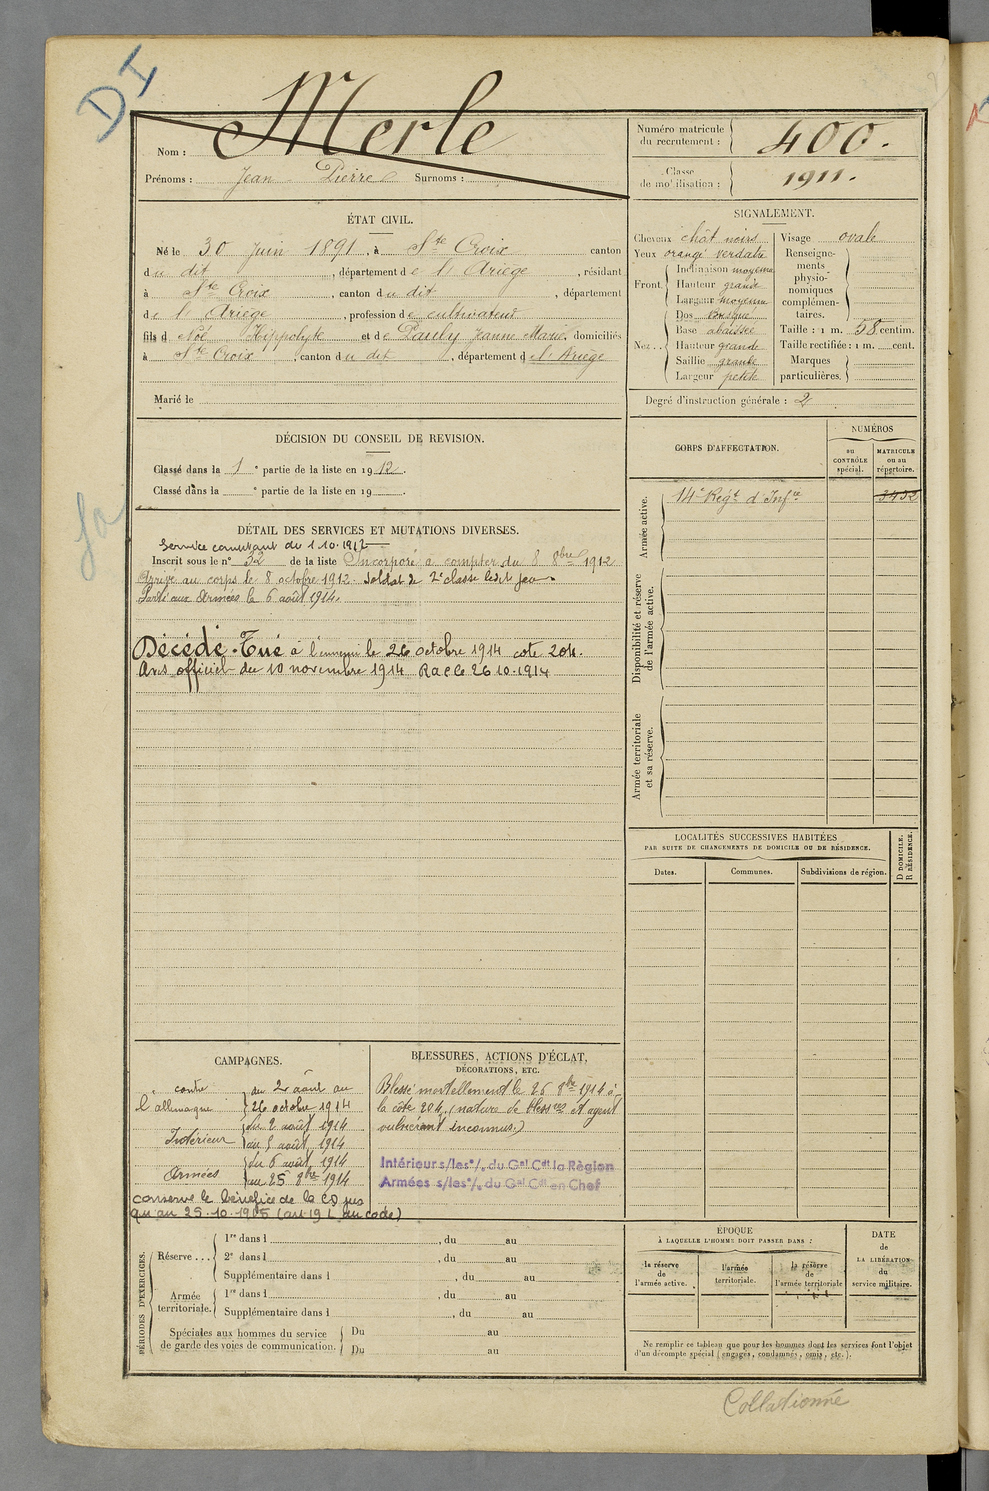 DI
Nom : Merle
Prénoms : Jean Pierre Surnoms :
Numéro matricule du recrutement : 400.
Classe de mobilisation : 1911.
ÉTAT CIVIL.
Né le 30 Juin 1891, à Ste Croix canton
du dit, département de l'Ariège, résidant
à Ste Croix, canton du dit, département
de l'Ariège, profession de cultivateur
fils d Noé Hippolyte et de Pauly Jeanne Marie, domiciliés
à Ste Croix, canton du dit, département de l'Ariège
Marié le
SIGNALEMENT.
Cheveux chât noirs
Yeux orangé verdatre
Front. Inclinaison moyenne
Hauteur grande
Largeur moyenne
Nez.. Dos busqué
Base abaissée
Hauteur grande
Saillie grande
Largeur petite
Visage ovale
Renseignements physionomiques complémentaires.
Taille : 1 m. 58 centim.
Taille rectifiée : 1 m. cent.
Marques particulières.
Degré d'instruction générale : 2
DÉCISION DU CONSEIL DE REVISION.
Classé dans la 1e partie de la liste en 1912.
Classé dans la e partie de la liste en 19
CORPS D'AFFECTATION.
NUMÉROS
au CONTRÔLE spécial.
MATRICULE ou au répertoire.
Armée active.
14e Régt d'Infie 3432
Disponibilité et réserve de l'armée active.
Armée territoriale et sa réserve.
DÉTAIL DES SERVICES ET MUTATIONS DIVERSES.
Service comptant du 1.10.1912
Inscrit sous le n° 32 de la liste Incorporé à compter du 8 8bre 1912
Arrivé au corps le 8 octobre 1912. Soldat de 2e classe ledit jour
Parti aux Armées le 6 août 1914.
Décédé. Tué à l'ennemi le 26 octobre 1914 cote 204.
Avis officiel du 10 novembre 1914 Rac le 26.10.1914
LOCALITÉS SUCCESSIVES HABITÉES
PAR SUITE DE CHANGEMENTS DE DOMICILE OU DE RÉSIDENCE.
Dates.
Communes.
Subdivisions de région.
D DOMICILE.
R RÉSIDENCE.
CAMPAGNES.
contre l'allemagne du 2 août au
26 octobre 1914
Intérieur du 2 août 1914
au 5 août 1914
Armées du 6 août 1914
au 25 8bre 1914
conserve le bénéfice de la
qu'au 25.10.1915 (art. 19 L du code)
BLESSURES, ACTIONS D'ÉCLAT,
DÉCORATIONS, ETC.
Blessé mortellement le 25 8bre 1914 à
la côte 204, (nature de bless res et agent
vulnérant inconnus.)
Intérieur s/les o/. du Gal Cdt la Région
Armées s/les o/. du Gal Cdt en Chef
PÉRIODES D'EXERCICES.
Réserve ... 1re dans l , du au
2e dans l , du au
Supplémentaire dans l , du au
Armée territoriale. 1re dans l , du au
Supplémentaire dans l , du au
Spéciales aux hommes du service de garde des voies de communication. Du au
Du au
ÉPOQUE
À LAQUELLE L'HOMME DOIT PASSER DANS :
la réserve de l'armée active.
l'armée territoriale.
la réserve de l'armée territoriale
DATE de LA LIBÉRATION du service militaire.
Ne remplir ce tableau que pour les hommes dont les services font l'objet
d'un décompte spécial (engagés, condamnés, omis, etc.).
Collationné